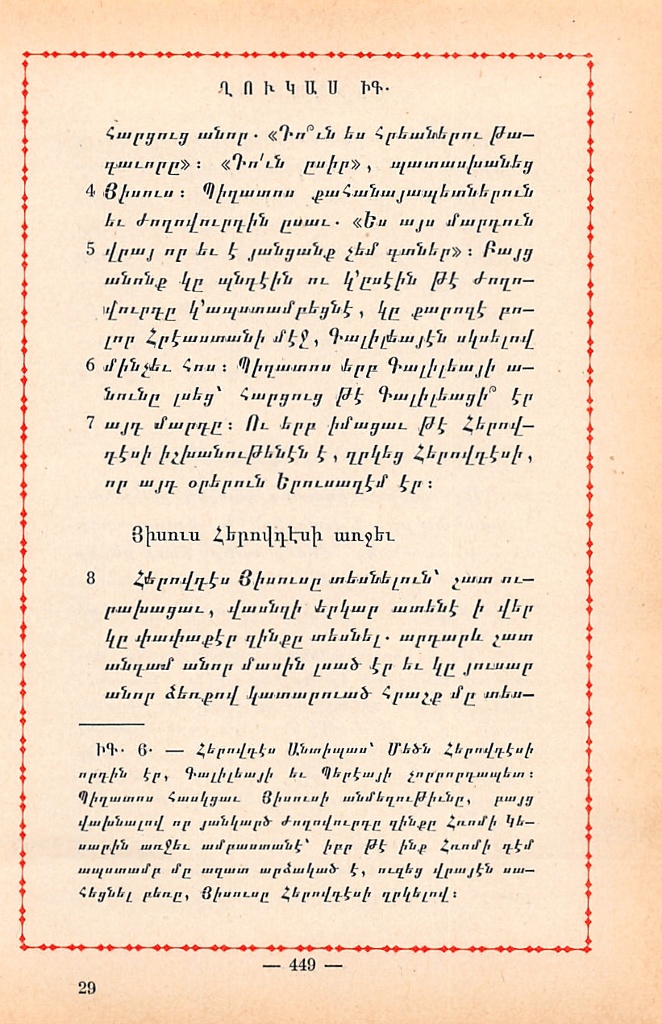 ՂՈՒԿԱՍ ԻԳ.
հարցուց անոր. «Դո՞ւն ես Հրեաներու Թա—
գաւորը»։ «Դո՛ւն ըսիր», պատասխանեց
4 Յիսուս։ Պիղատոս քահանայապետներուն
եւ ժողովուրդին ըսաւ. «Ես այս մարդուն
5 վրայ որ եւ է յանցանք չեմ գտներ»։ Բայց
անոնք կը պնդէին ու կ՚ըսէին թէ ժողո—
վուրդը կ՚ապստամբեցնէ, կը քարոզէ բո—
լոր Հրէաստանի մէջ, Գալիլեայէն սկսելով
6 մինչեւ հոս։ Պիղատոս երբ Գալիլեայի ա—
նունը լսեց՝ հարցուց թէ Գալիլեացի՞ էր
7 այդ մարդը։ Ու երբ իմացաւ թէ Հերով—
դէսի իշխանութենէն է, ղրկեց Հերովդէսի,
որ այդ օրերուն Երուսաղէմ էր։
Յիսուս Հերովդէսի առջեւ
8 Հերովդէս Յիսուսը տեսնելուն՝ շատ ու—
րախացաւ, վասնզի երկար ատենէ ի վեր
կը փափաքէր զինքը տեսնել. արդարև շատ
անգամ անոր մասին լսած էր եւ կը յուսար
անոր ձեռքով կատարուած հրաշք մը տես—
ԻԳ. 6. — Հերովդէս Անտիպաս՝ Մեծն Հերովդէսի
որդին էր, Գալիլեայի եւ Պերէայի չորրորդապետ։
Պիղատոս հասկցաւ Յիսուսի անմեղութիւնը, բայց
վախնալով որ յանկարծ ժողովուրդը զինքը Հռոմի Կե—
սարին առջեւ ամբաստանէ՝ իբր թէ ինք Հռոմի դէմ
ապստամբ մը ազատ արձակած է, ուզեց վրայէն սա—
հեցնել բեռը, Յիսուսը Հերովդէսի ղրկելով։
— 449 —
29